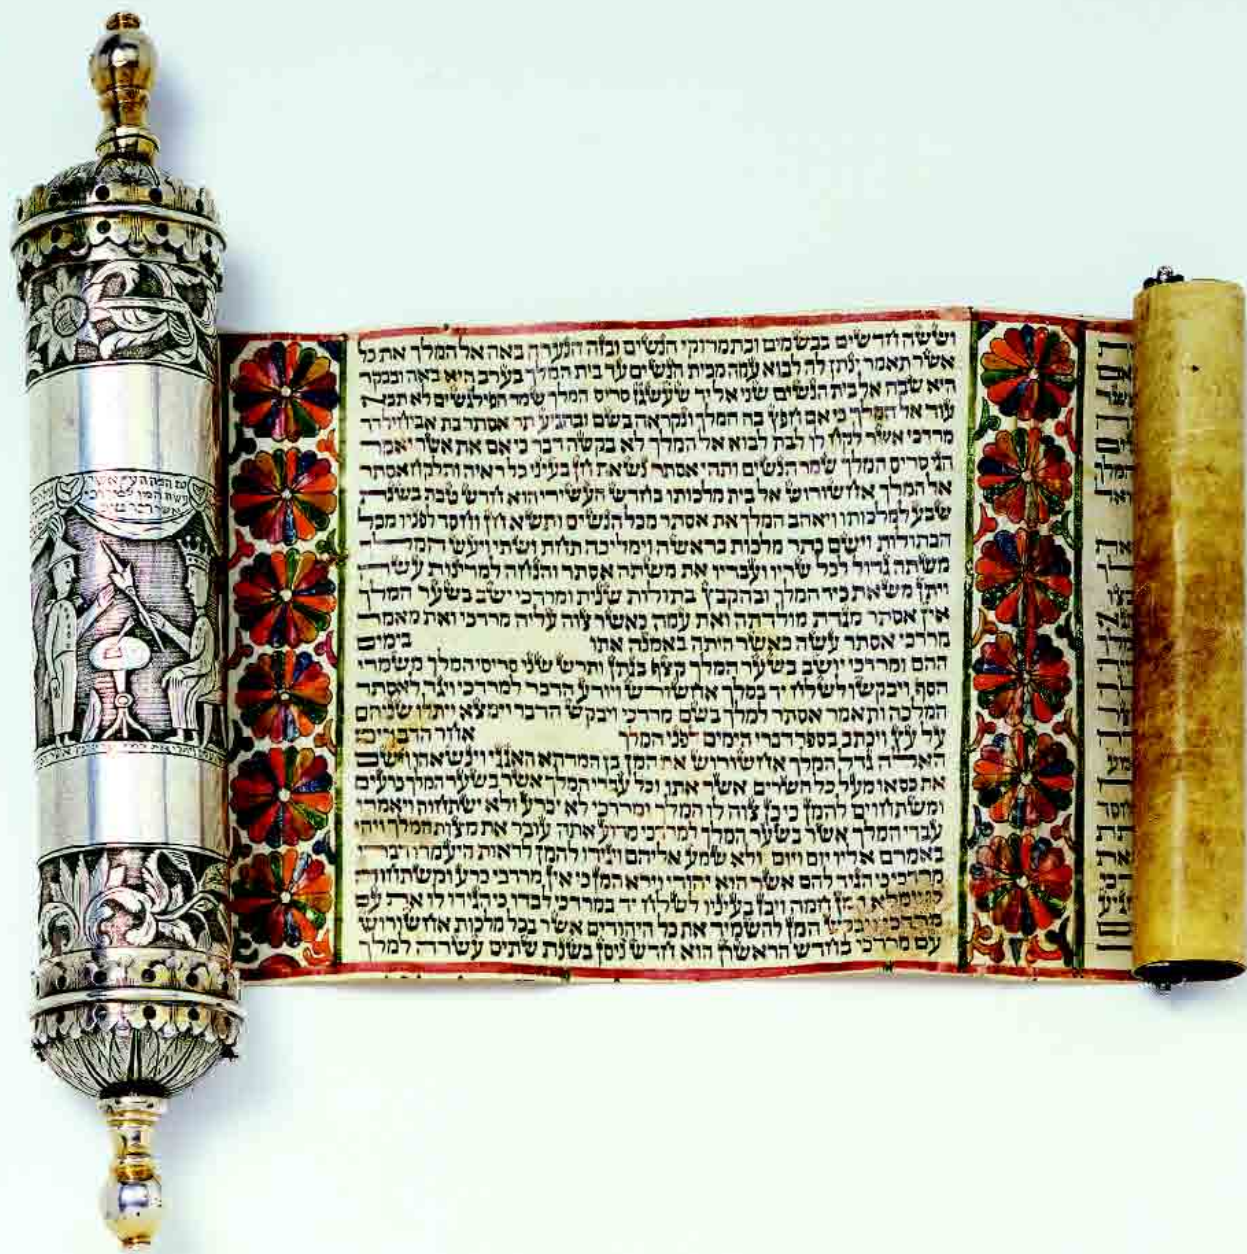 וששה חדשים בבשמים ובתמרוקי הנשים ובזה הנערה באה אל המלך את כל
אשר תאמר ינתן לה לבוא עמה מבית הנשים עד בית המלך בערב היא באה ובבקר
היא שבה אל בית הנשים שני אל יד שעשגז סריס המלך שמר הפילגשים לא תבוא
עוד אל המלך כי אם חפץ בה המלך ונקראה בשם ובהגיע תר אסתר בת אביחיל דד
מרדכי אשר לקח לו לבת לבוא אל המלך לא בקשה דבר כי אם את אשר יאמר
הגי סריס המלך שמר הנשים ותהי אסתר נשאת חן בעיני כל ראיה ותלקח אסתר
אל המלך אחשורוש אל בית מלכותו בחדש העשירי הוא חדש טבת בשנת
שבע למלכותו ויאהב המלך את אסתר מכל הנשים ותשא חן וחסד לפניו מכל
הבתולות וישם כתר מלכות בראשה וימליכה תחת ושתי ויעש המלך
משתה גדול לכל שריו ועבדיו את משתה אסתר והנחה למדינות עשה
ויתן משאת כיד המלך ובהקבץ בתולות שנית ומרדכי ישב בשער המלך
אין אסתר מגדת מולדתה ואת עמה כאשר צוה עליה מרדכי ואת מאמר
מרדכי אסתר עשה כאשר היתה באמנה אתו בימים
ההם ומרדכי יושב בשער המלך קצף בגתן ותרש שני סריסי המלך משמרי
הסף ויבקשו לשלח יד במלך אחשורוש ויודע הדבר למרדכי ויגד לאסתר
המלכה ותאמר אסתר למלך בשם מרדכי ויבקש הדבר וימצא ויתלו שניהם
על עץ ויכתב בספר דברי הימים לפני המלך אחר הדברים
האלה גדל המלך אחשורוש את המן בן המדתא האגגי וינשאהו וישם
את כסאו מעל כל השרים אשר אתו וכל עבדי המלך אשר בשער המלך כרעים
ומשתחוים להמן כי כן צוה לו המלך ומרדכי לא יכרע ולא ישתחוה ויאמרו
עבדי המלך אשר בשער המלך למרדכי מדוע אתה עובר את מצות המלך ויהי
באמרם אליו יום ויום ולא שמע אליהם ויגידו להמן לראות היעמדו דברי
מרדכי כי הגיד להם אשר הוא יהודי וירא המן כי אין מרדכי כרע ומשתחוה
לו וימלא המן חמה ויבז בעיניו לשלח יד במרדכי לבדו כי הגידו לו את עם
מרדכי ויבקש המן להשמיד את כל היהודים אשר בכל מלכות אחשורוש
עם מרדכי בחדש הראשון הוא חדש ניסן בשנת שתים עשרה למלך
העץ אשר
עשה המן למרדכי
אשר דבר טוב